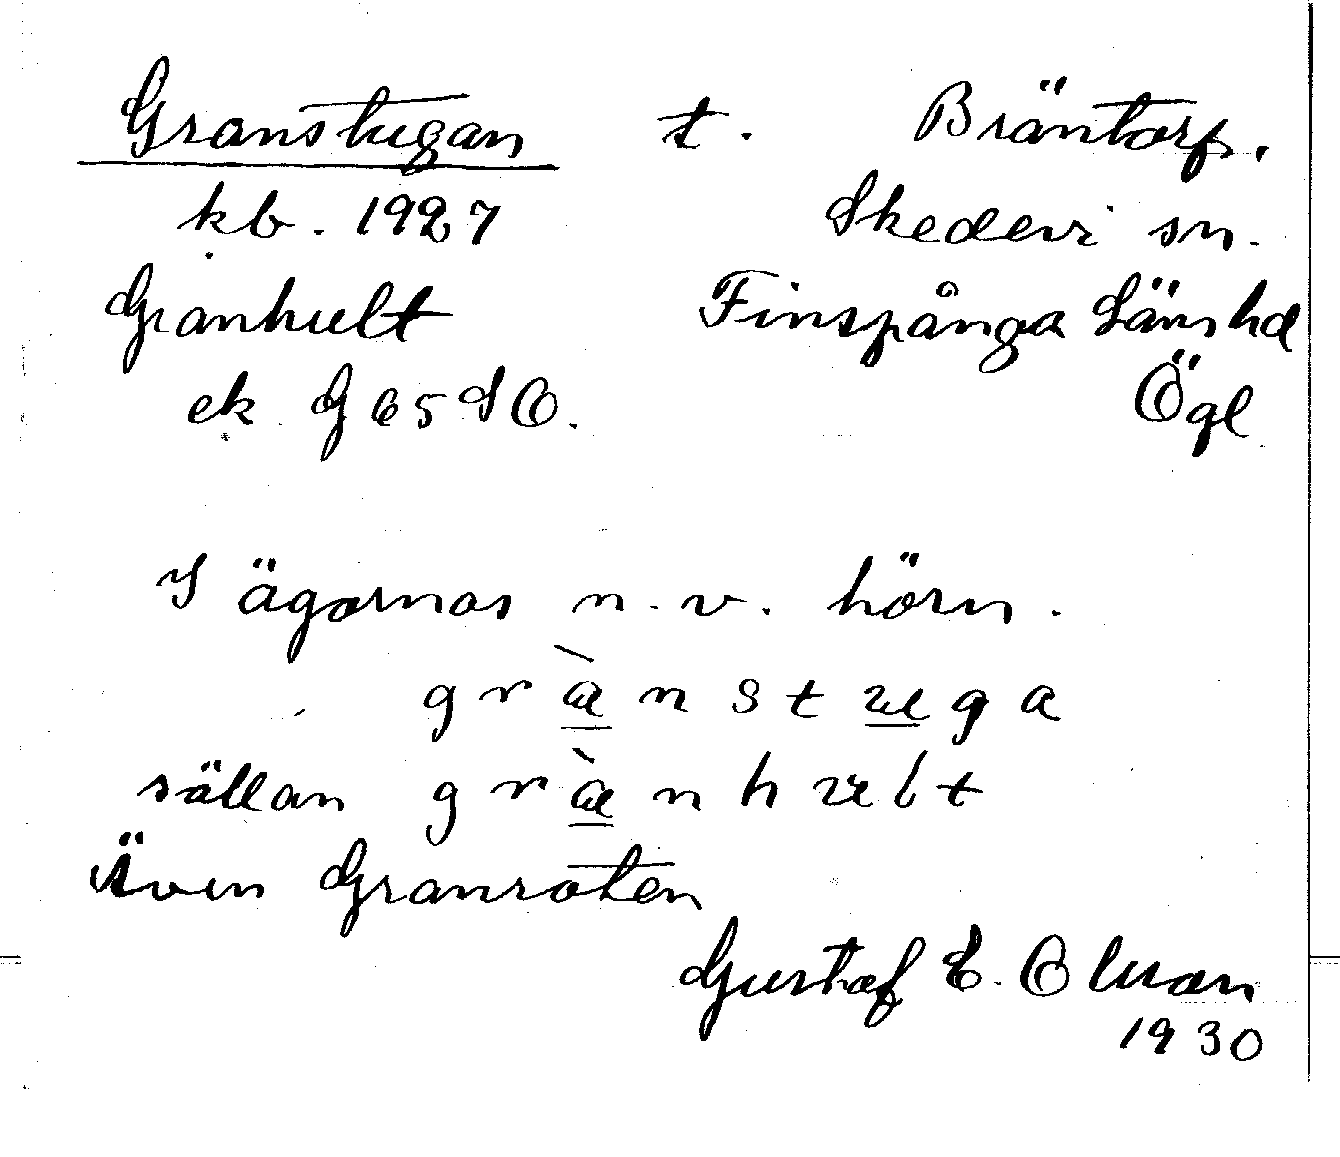 Granstugan t. Bräntorp.
kb. 1927 Skedevi sn.
Granhult Finspånga Läns hd
ek G 65 SO. Ögl
I ägornas n.v. hörn.
grànstuga
sällan grànhult
Även Granroten
Gustaf E. Olsson
1930